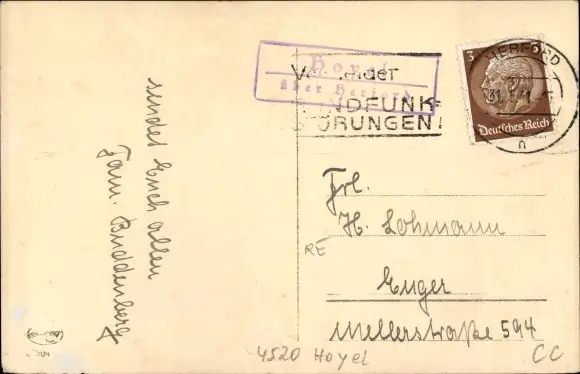 Hoyel
über Herford
HERFORD
31.5.41
n
3
Deutsches Reich
RUNDFUNK-
STÖRUNGEN!
sendet Euch allen
Fam. Buddenberg
Frl.
H. Lohmann
Enger
Mellerstraße 594
RE
4520 Hoyel
CC